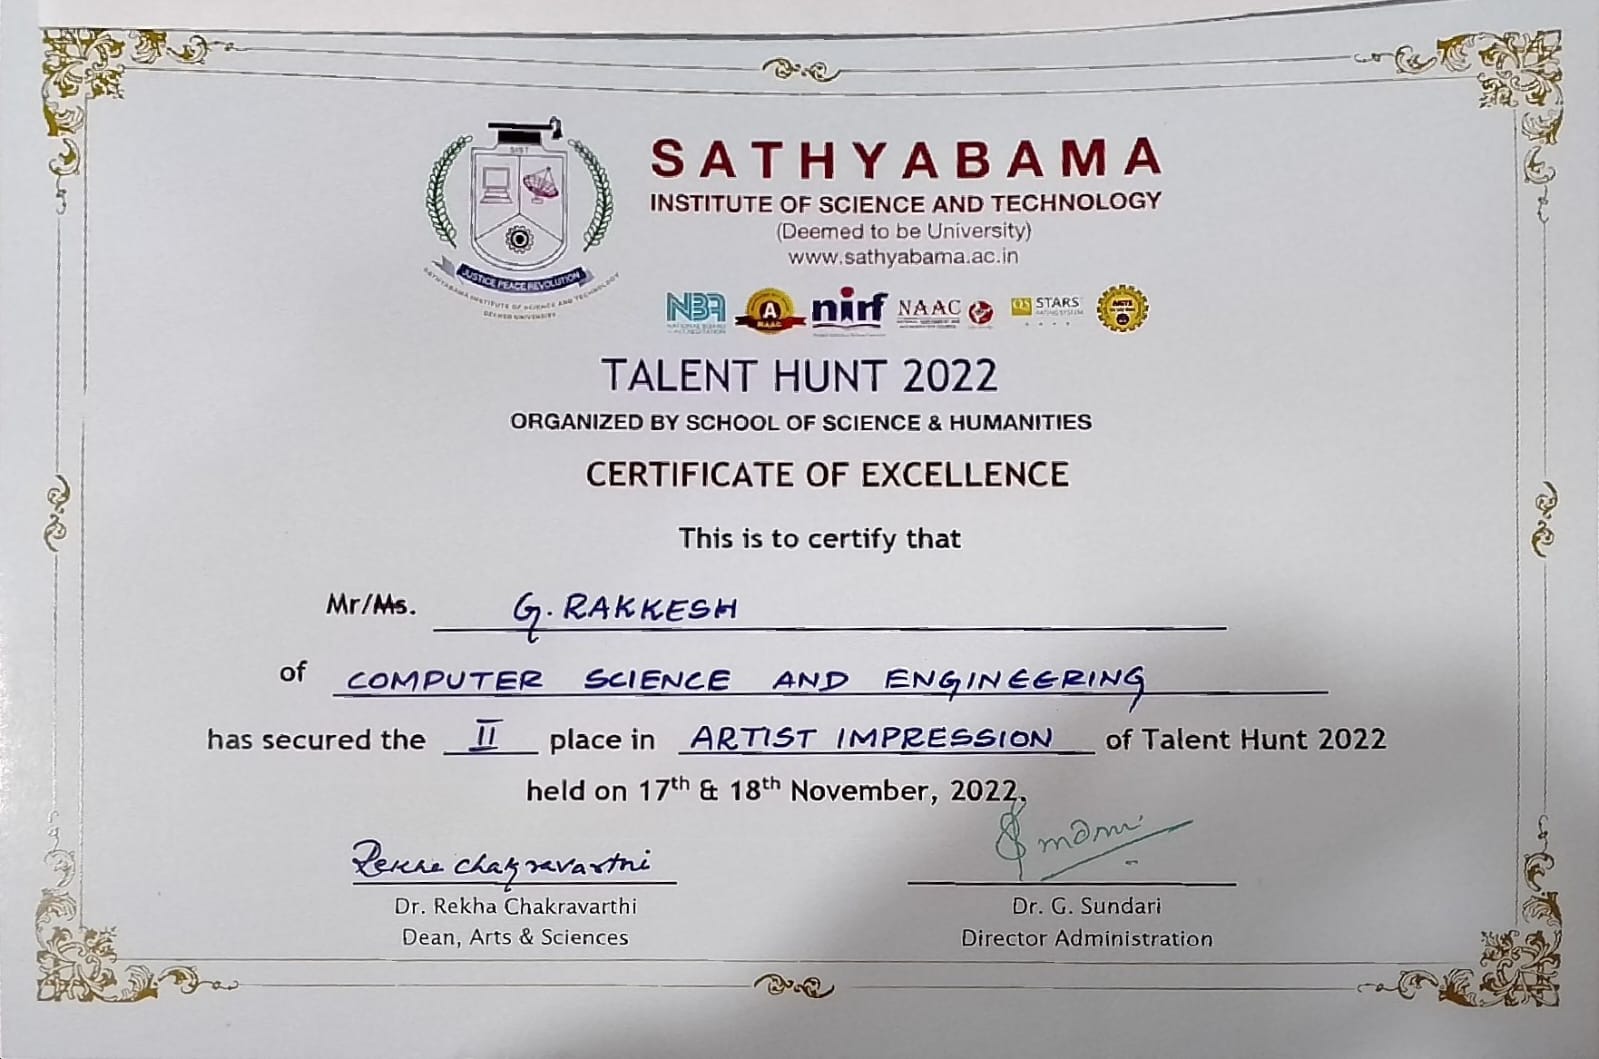 SIST
JUSTICE PEACE REVOLUTION
SATHYABAMA INSTITUTE OF SCIENCE AND TECHNOLOGY
DEEMED UNIVERSITY
SATHYABAMA
INSTITUTE OF SCIENCE AND TECHNOLOGY
(Deemed to be University)
www.sathyabama.ac.in
NBA A NAAC nirf NAAC QS STARS
NATIONAL BOARD OF ACCREDITATION RATING SYSTEM
TALENT HUNT 2022
ORGANIZED BY SCHOOL OF SCIENCE & HUMANITIES
CERTIFICATE OF EXCELLENCE
This is to certify that
Mr/Ms. G. RAKKESH
of COMPUTER SCIENCE AND ENGINEERING
has secured the II place in ARTIST IMPRESSION of Talent Hunt 2022
held on 17th & 18th November, 2022.
Rekha Chakravarthi
Dr. Rekha Chakravarthi Dr. G. Sundari
Dean, Arts & Sciences Director Administration